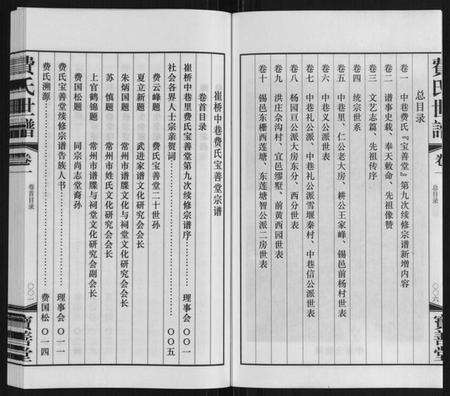 费氏世譜
卷一
总目录
寳善堂
总目录
卷一 中巷费氏『宝善堂』第九次续修宗谱新增内容
卷二 谱序事史载、奉天敕命、先祖像赞
卷三 文艺志篇、先祖传序
卷四 统宗世系
卷五 中巷里、仁公老大房、耕公王家峰、锡邑前杨村世表
卷六 中巷义公派世表
卷七 中巷礼公派、中巷礼公派雪堰秦村、中巷信公派世表
卷八 杨园亘公派大房东分、西分世表
卷九 洪庄佘沟村、宜邑缪墅、前黄西园世表
卷十 锡邑东栅西莲塘、东莲塘智公派二房世表
崔桥中巷费氏宝善堂宗谱
卷首目录
崔桥中巷里费氏宝善堂第九次续修宗谱序 理事会 〇〇一
社会各界人士宗亲贺词 〇〇五
费云峰题 费氏宝善堂二十世孙
夏立新题 武进家谱文化研究会会长
朱炳国题 常州市谱牒与祠堂文化研究会会长
苏慎题 常州市姓氏文化研究会会长
上官鹤锦题 常州市谱牒与祠堂文化研究会副会长
费国松题 同宗尚志堂裔孙
费氏宝善堂续修宗谱告族人书 理事会 〇一一
费氏溯源 费国松 〇一四
费氏世譜
卷一
卷首目录
寳善堂